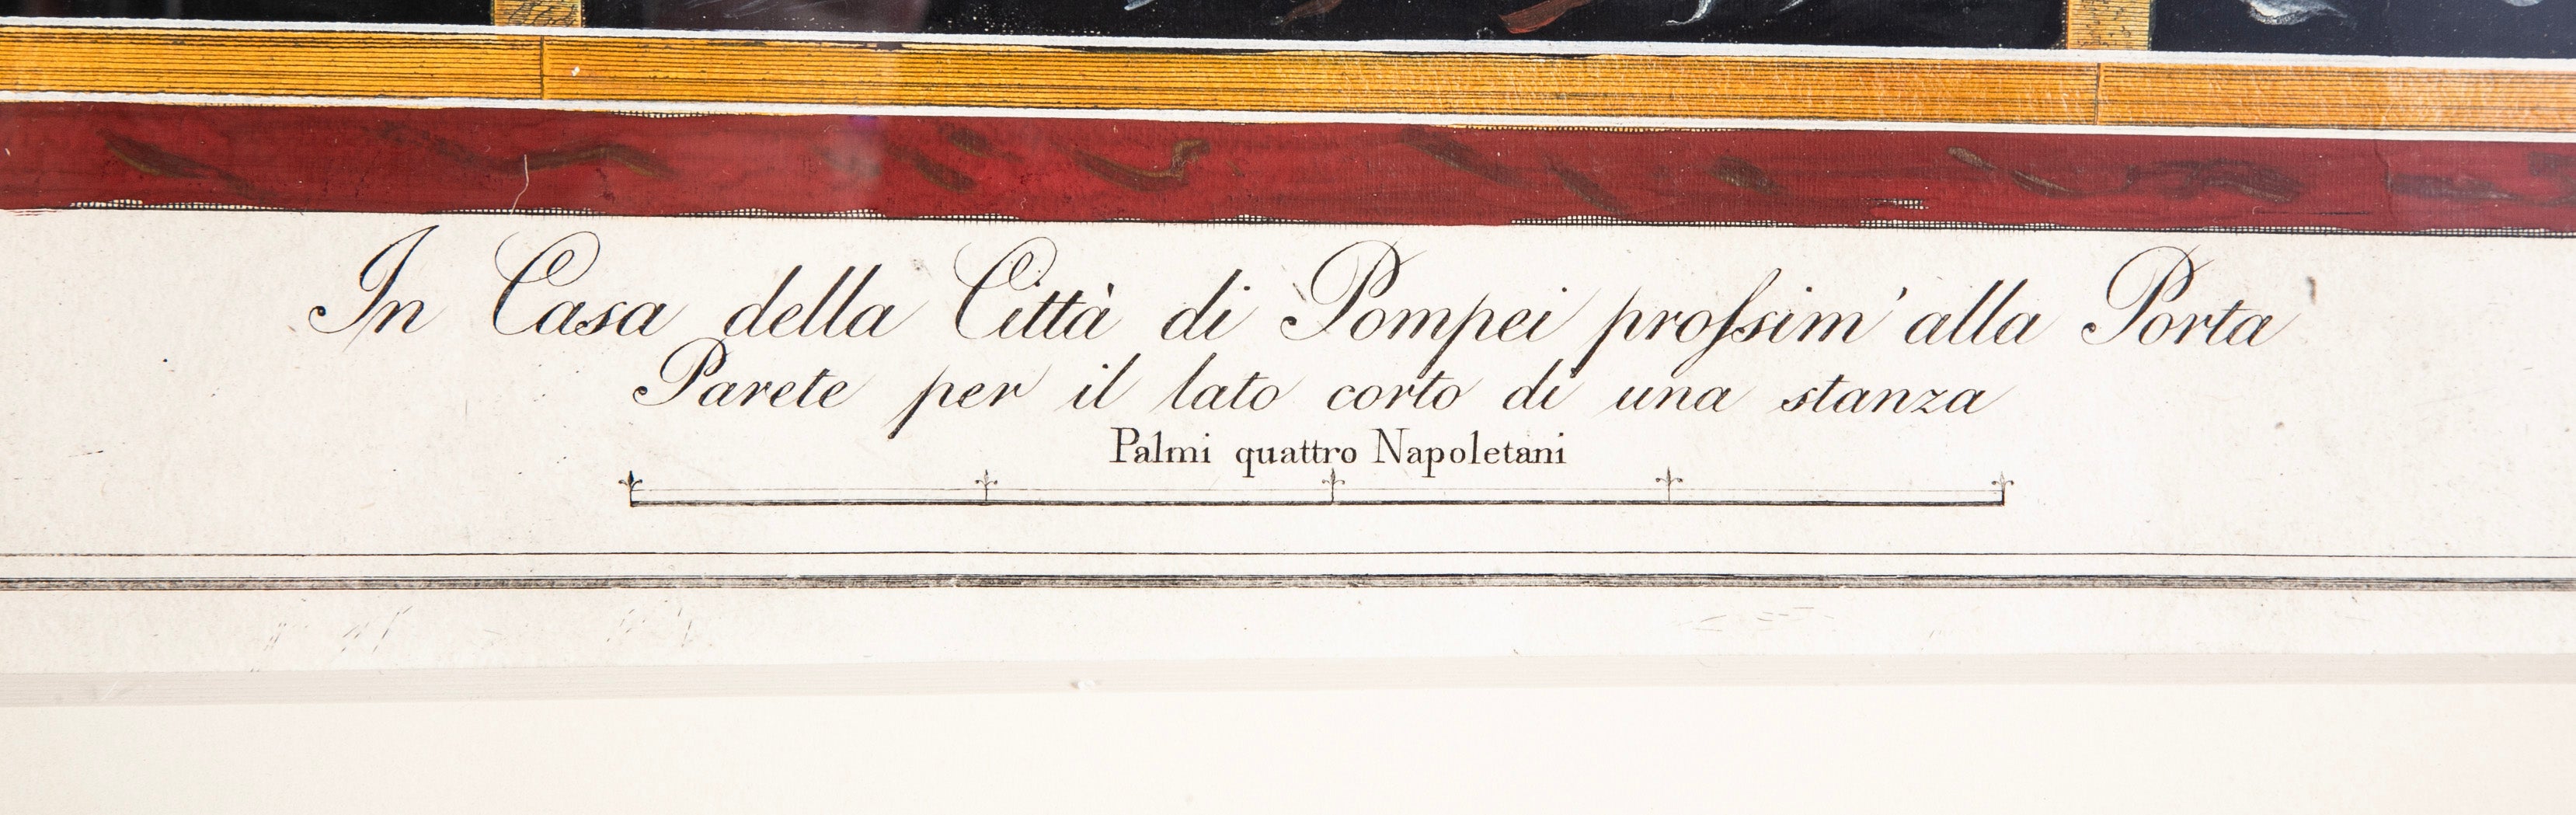 In Casa della Città di Pompei proſsim' alla Porta
Parete per il lato corto di una stanza
Palmi quattro Napoletani